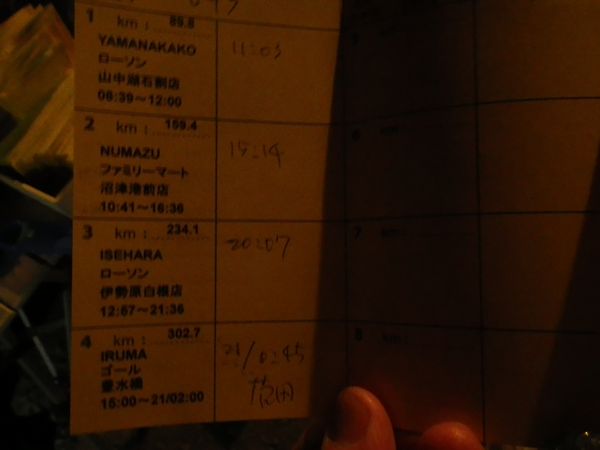 1 km : 89.8
YAMANAKAKO
ローソン
山中湖石割店
08:39～12:00
11:03
2 km : 159.4
NUMAZU
ファミリーマート
沼津港前店
10:41～16:36
15:14
3 km : 234.1
ISEHARA
ローソン
伊勢原白根店
12:57～21:36
20:07
4 km : 302.7
IRUMA
ゴール
豊水橋
15:00～21/02:00
21/0:45
6 km :
7 km :
8 km :